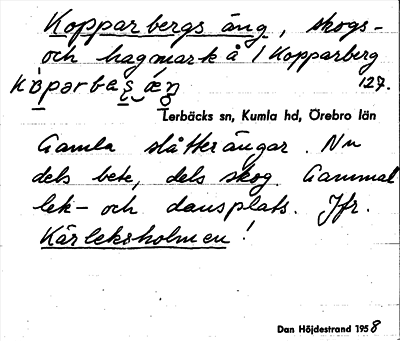 Kopparbergs äng, skogs-
och hagmark å 1 Kopparberg
127.
Lerbäcks sn, Kumla hd, Örebro län
Gamla slåtterängar. Nu
dels bete, dels skog Gammal
lek- och dansplats. Jfr.
Kärleksholmen!
Dan Höjdestrand 1958